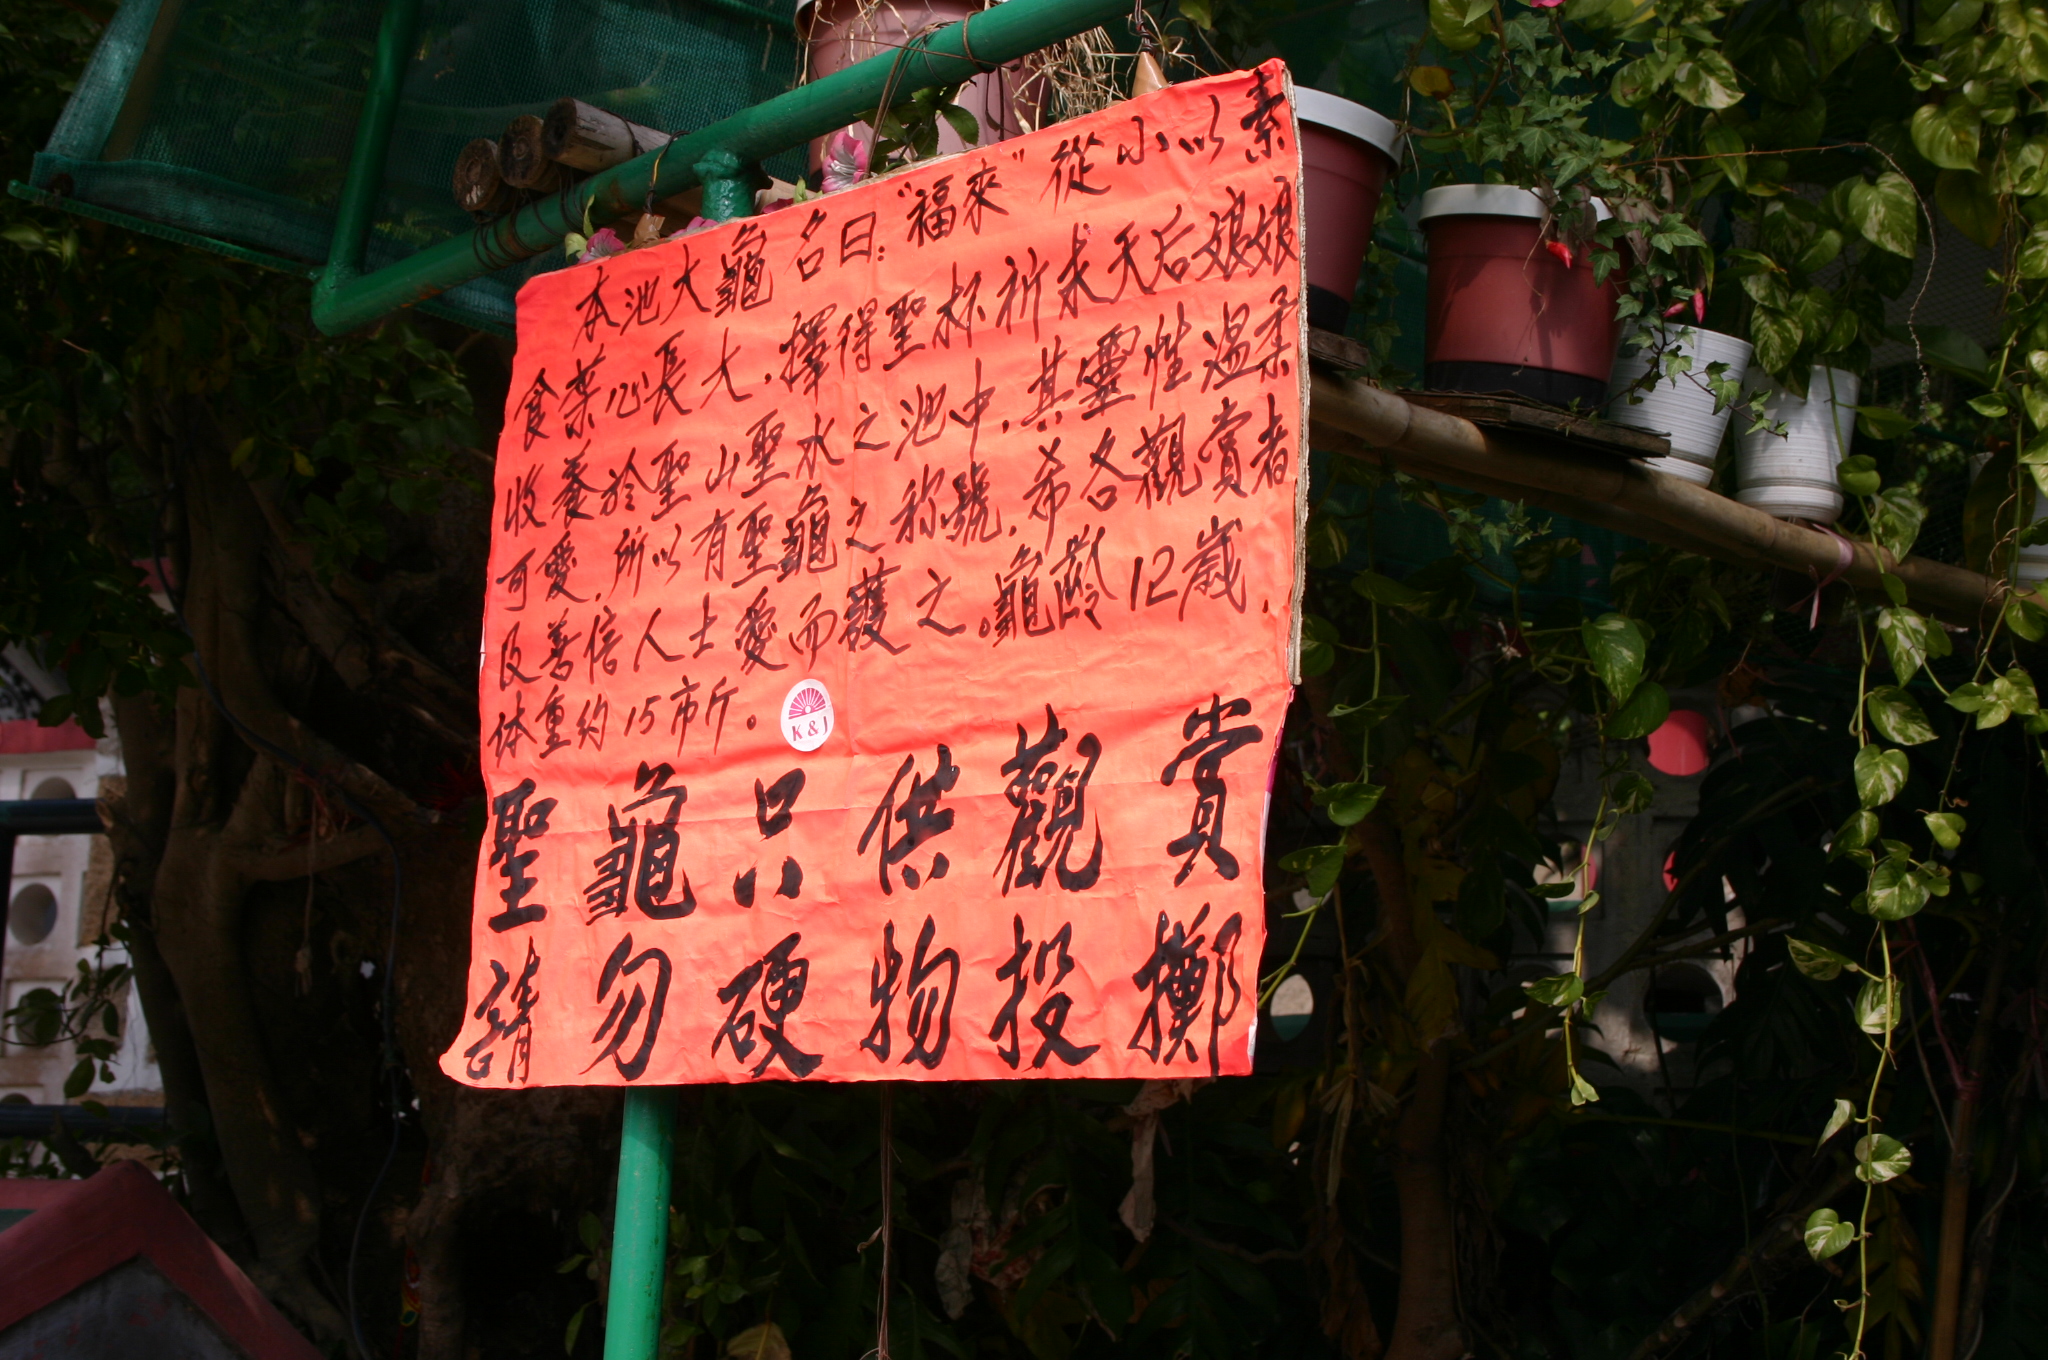 本池大龜名曰:"福來"從小以素
食菜心長大,擇得聖杯祈求天后娘娘
收養於聖山聖水之池中,其靈性温柔
可愛,所以有聖龜之称號,希各觀賞者
及善信人士愛而護之。龜齡12歲,
体重約15市斤。
K & J
聖龜只供觀賞
請勿硬物投擲